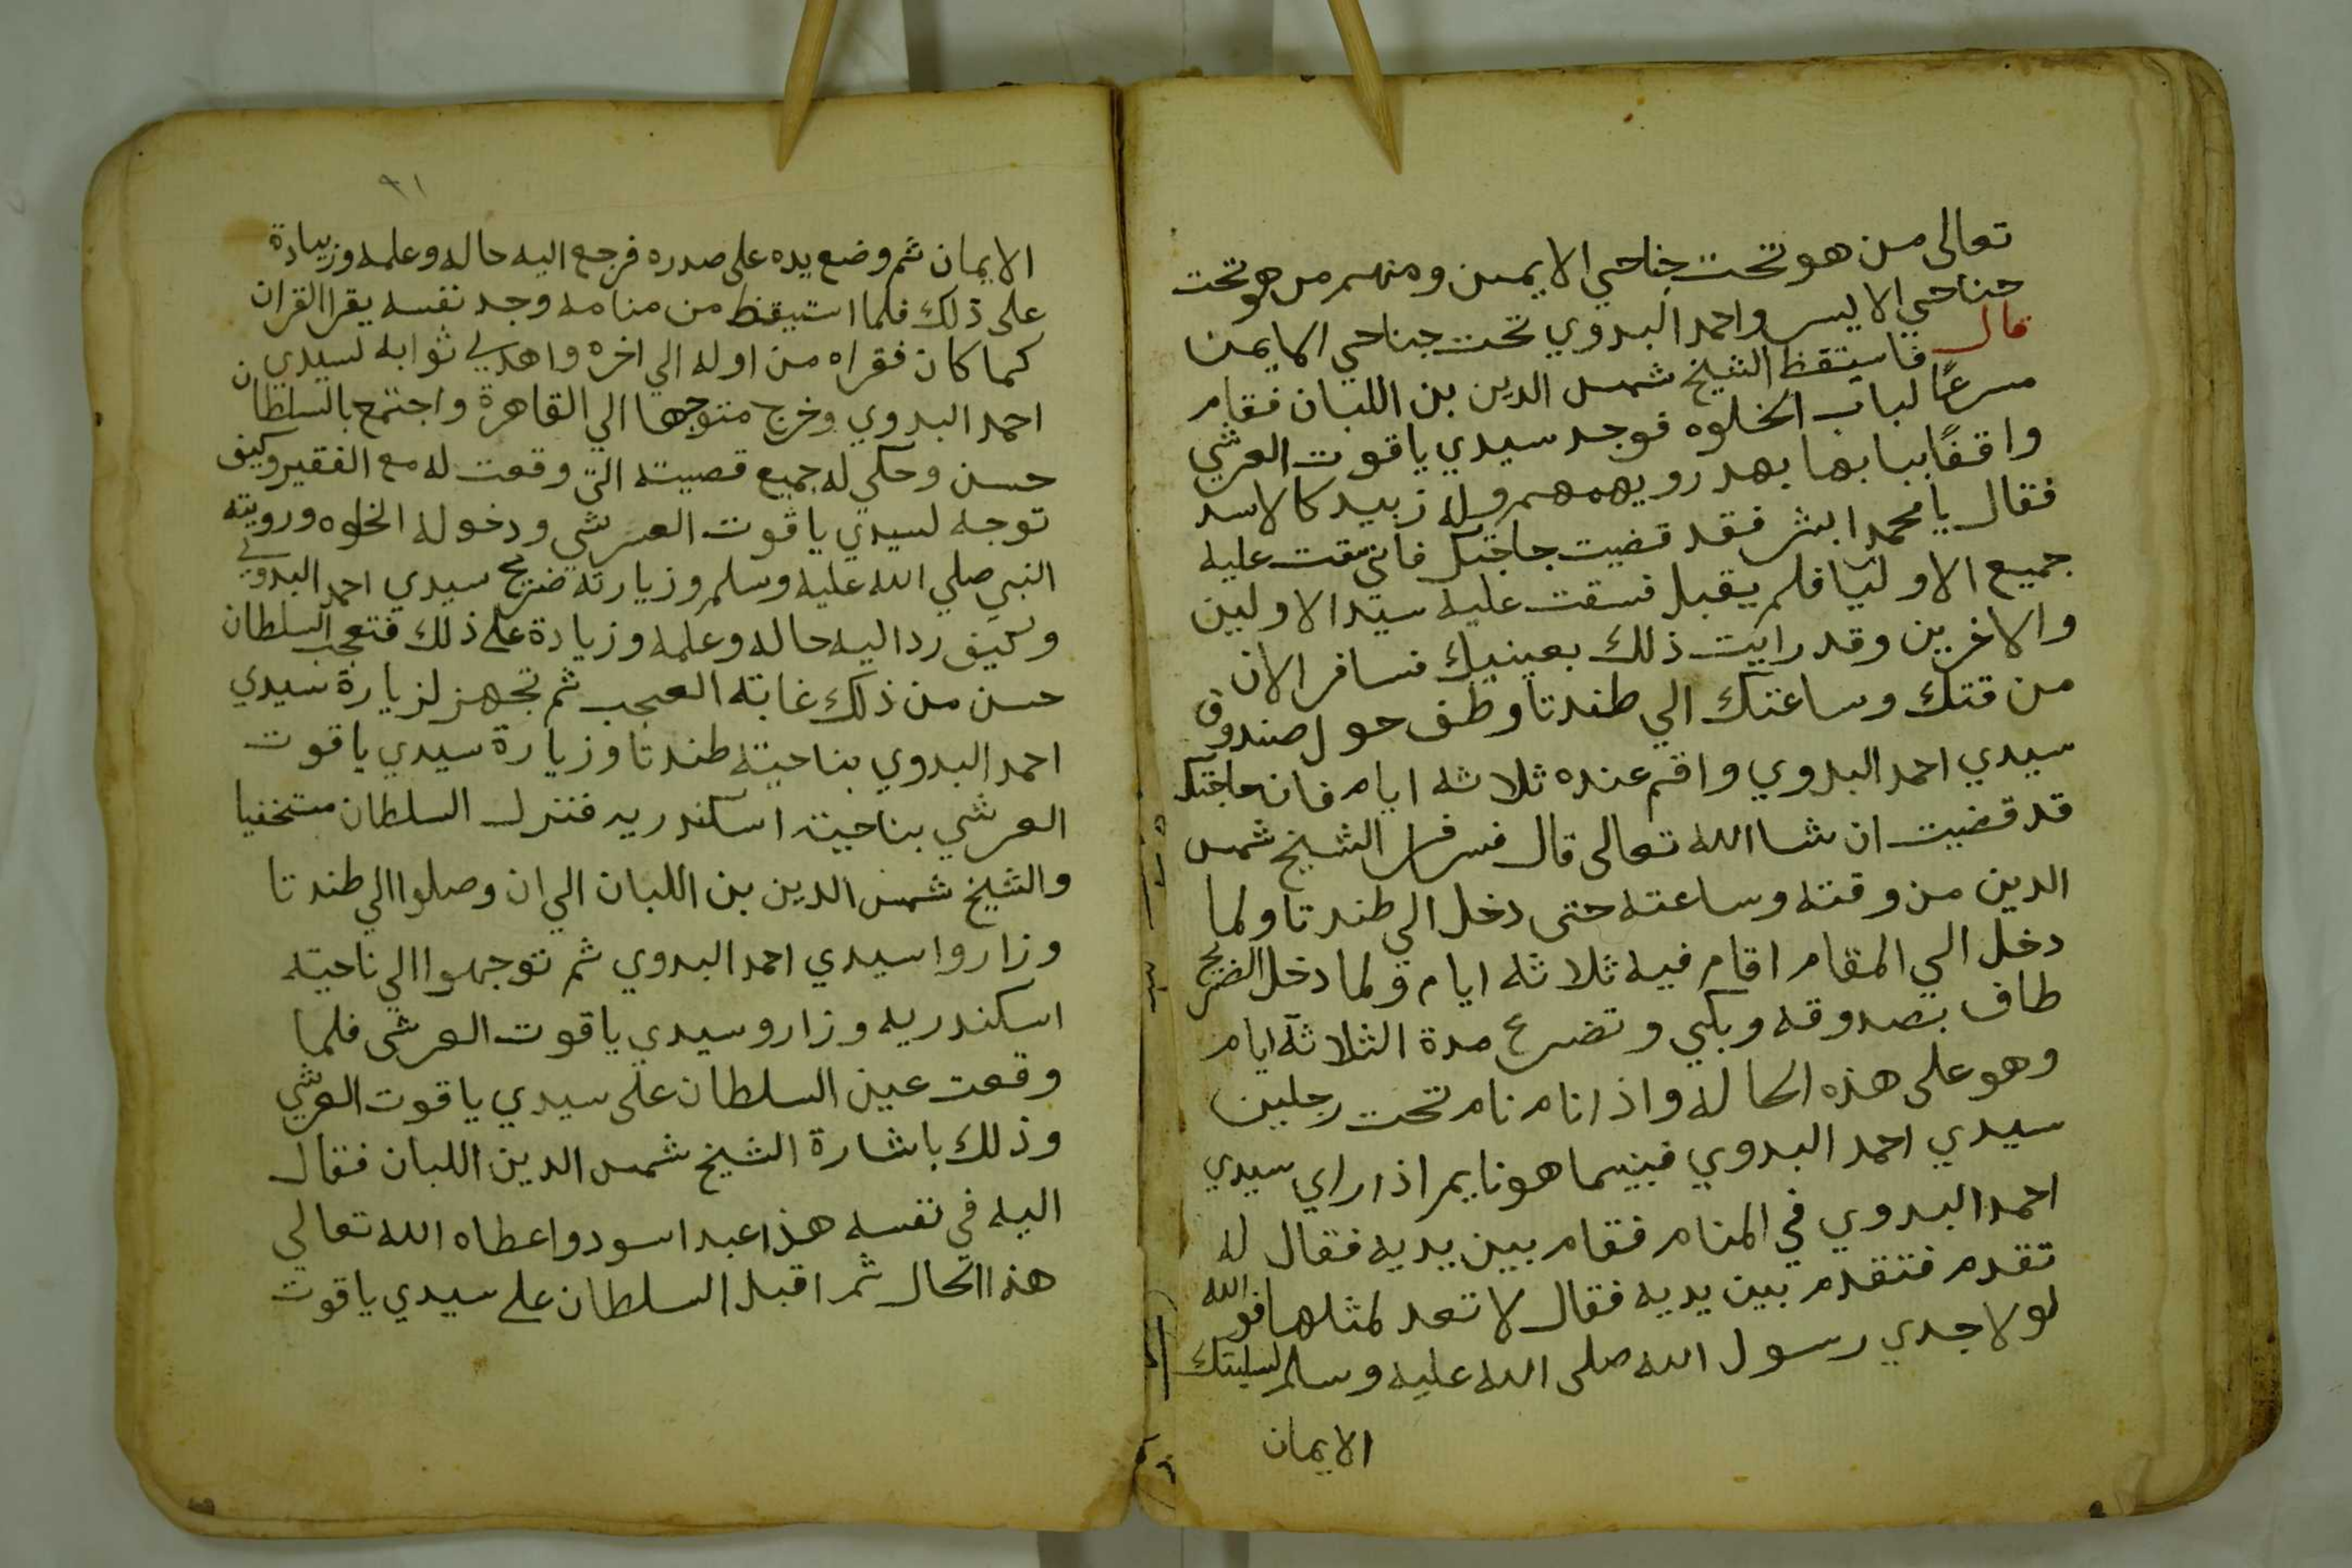 تعالى من هو تحت جناحي الايمن ومنهم من هو تحت
جناحي الايسر واحمد البدوي تحت جناحي الايمن
قال فاستيقظ الشيخ شمس الدين بن اللبان فقام
مسرعًا لباب الخلوه فوجد سيدي ياقوت العرشي
واقفًا ببابها بهدر ويهمهم وله زبيد كالاسد
فقال يا محمد ابشر فقد قضيت حاجتك فاني سقت عليه
جميع الاوليا فلم يقبل فسقت عليه سيد الاولين
والاخرين وقد رايت ذلك بعينيك فسافر الان
من قتك وساعتك الي طندتا وطف حول صندوق
سيدي احمد البدوي واقم عنده ثلاثه ايام فان حاجتك
قد قضيت ان شا الله تعالى قال فسافر الشيخ شمس
الدين من وقته وساعته حتى دخل الي طندتا ولما
دخل الي المقام اقام فيه ثلاثه ايام ولما دخل الضريح
طاف بصدوقه وبكي وتضرع مدة الثلاثة ايام
وهو على هذه الحاله واذا نام نام تحت رجلين
سيدي احمد البدوي فبينما هو نايم اذا راي سيدي
احمد البدوي في المنام فقام بين يديه فقال له
تقدم فتقدم بين يديه فقال لا تعد لمثلها فو الله
لولا جدي رسول الله صلى الله عليه وسلم لسلبتك
الايمان
٩١
الايمان ثم وضع يده على صدره فرجع اليه حاله وعلمه وزيادة
على ذلك فلما استيقظ من منامه وجد نفسه يقرا القران
كما كان فقراه من اوله الي اخره واهدي ثوابه لسيدي
احمد البدوي وخرج متوجها الي القاهرة واجتمع بالسلطان
حسن وحكي له جميع قصيته التي وقعت له مع الفقير وكيف
توجه لسيدي ياقوت العرشي ودخوله الخلوه ورويته
النبي صلي الله عليه وسلم وزيارته ضريح سيدي احمد البدوي
وكيف رد اليه حاله وعلمه وزيادة على ذلك فتعجب السلطان
حسن من ذلك غاية العجب ثم تجهز لزيارة سيدي
احمد البدوي بناحية طندتا وزيارة سيدي ياقوت
العرشي بناحية اسكندريه فنزل السلطان مستخفيا
والشيخ شمس الدين بن اللبان الي ان وصلوا الي طندتا
وزاروا سيدي احمد البدوي ثم توجهوا الي ناحية
اسكندريه وزارو سيدي ياقوت العرشي فلما
وقعت عين السلطان على سيدي ياقوت العرشي
وذلك باشارة الشيخ شمس الدين اللبان فقال
اليه في نفسه هذا عبد اسود واعطاه الله تعالي
هذا الحال ثم اقبل السلطان على سيدي ياقوت